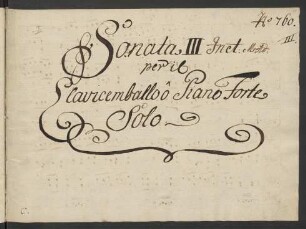 No 760.
III.
Sonata III
per il
Clavicembalo ô Piano Forte
Solo